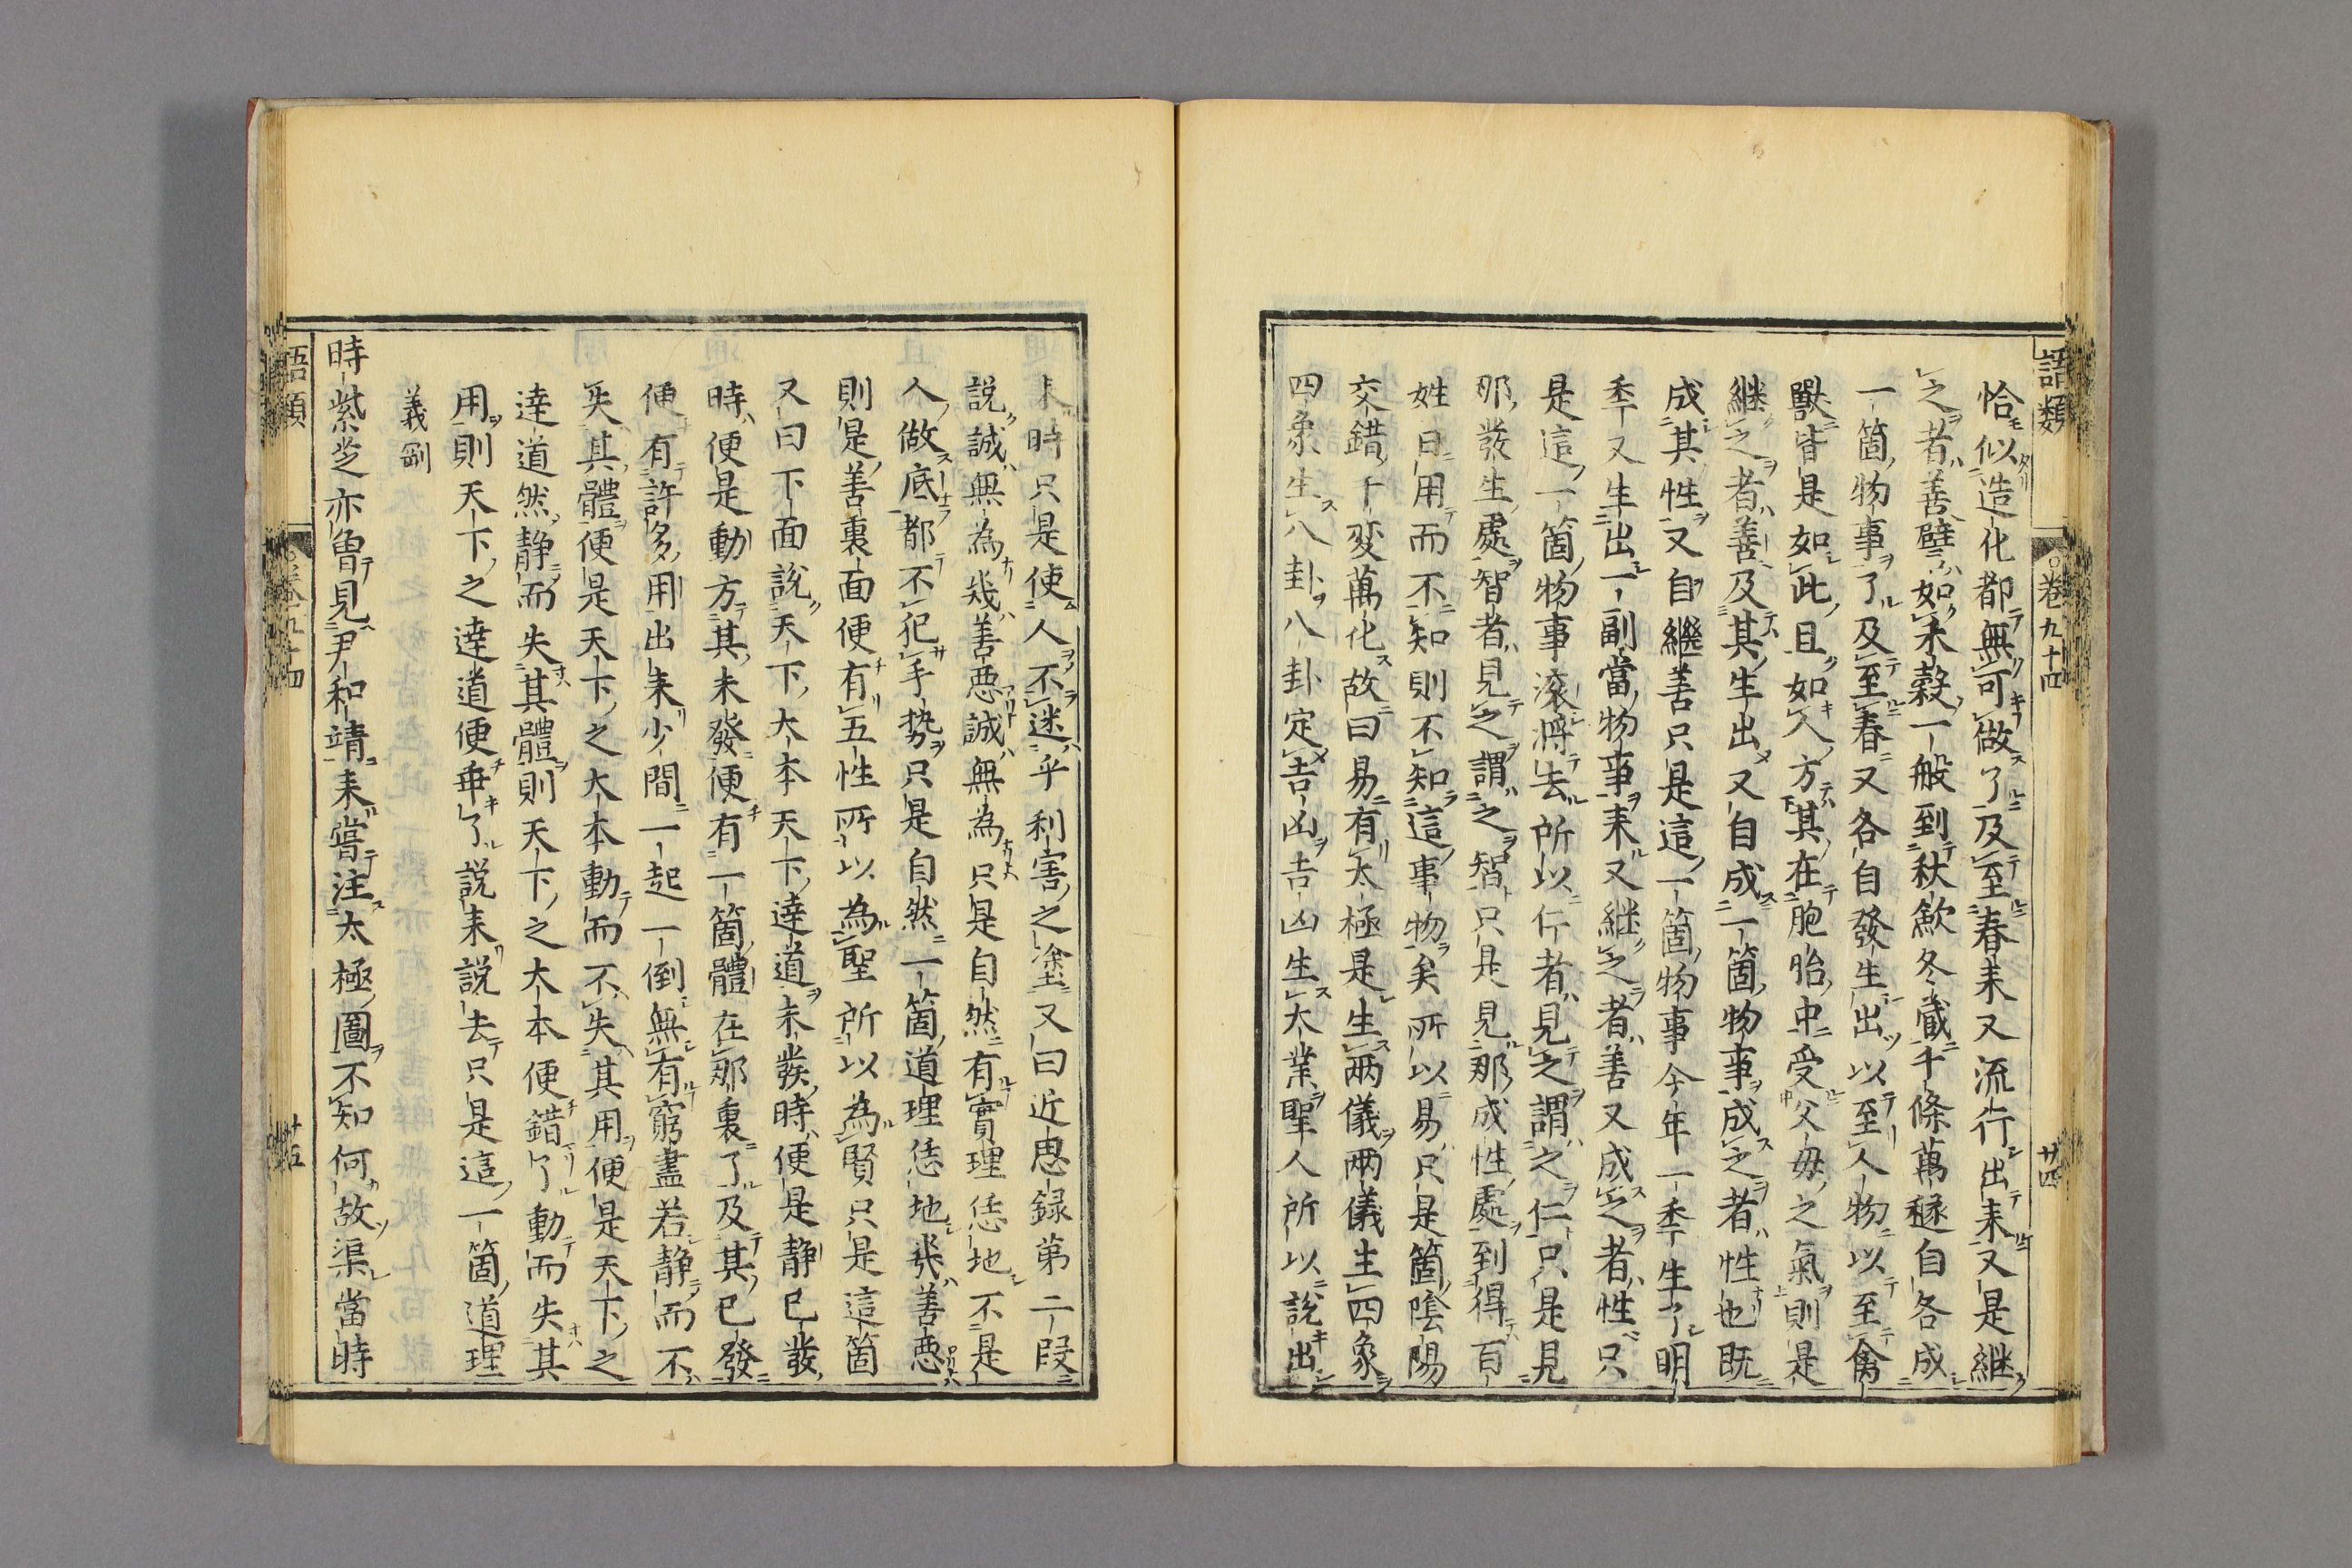 語類　卷九十四　廿四
恰似造化都無可做了及至春来又流行出来又是継
之者善譬如禾穀一般到秋歛冬蔵千條萬穟自各成
一箇物事了及至春又各自發生出以至人物以至禽
獸皆是如此且如人方其在胞胎中受父母之氣則是
継之者善及其生出又自成一箇物事成之者性也既
成其性又自繼善只是這一箇物事今年一季生了明
季又生出一副當物事来又継之者善又成之者性只
是這一箇物事滚將去所以仁者見之謂之仁只是見
那發生處智者見之謂之智只是見那成性處到得百
姓日用而不知則不知這事物矣所以易只是箇陰陽
交錯千変萬化故曰易有太極是生兩儀兩儀生四象
四象生八卦八卦定吉凶吉凶生大業聖人所以說出
来時只是使人不迷乎利害之塗又曰近思録第二段
説誠無為幾善惡誠無為只是自然有實理恁地不是
人做底都不犯手勢只是自然一箇道理恁地幾善惡
則是善裏面便有五性所以為聖所以為賢只是這箇
又曰下面說天下大本天下達道未發時便是静已發
時便是動方其未發便有一箇體在那裏了及其已發
便有許多用出来少間一起一倒無有窮盡若静而不
失其體便是天下之大本動而不失其用便是天下之
達道然静而失其體則天下之大本便錯了動而失其
用則天下之達道便乖了說来說去只是這一箇道理
義剛
時紫芝亦曽見尹和靖来嘗注太極圖不知何故渠當時
語類　卷九十四　廿五